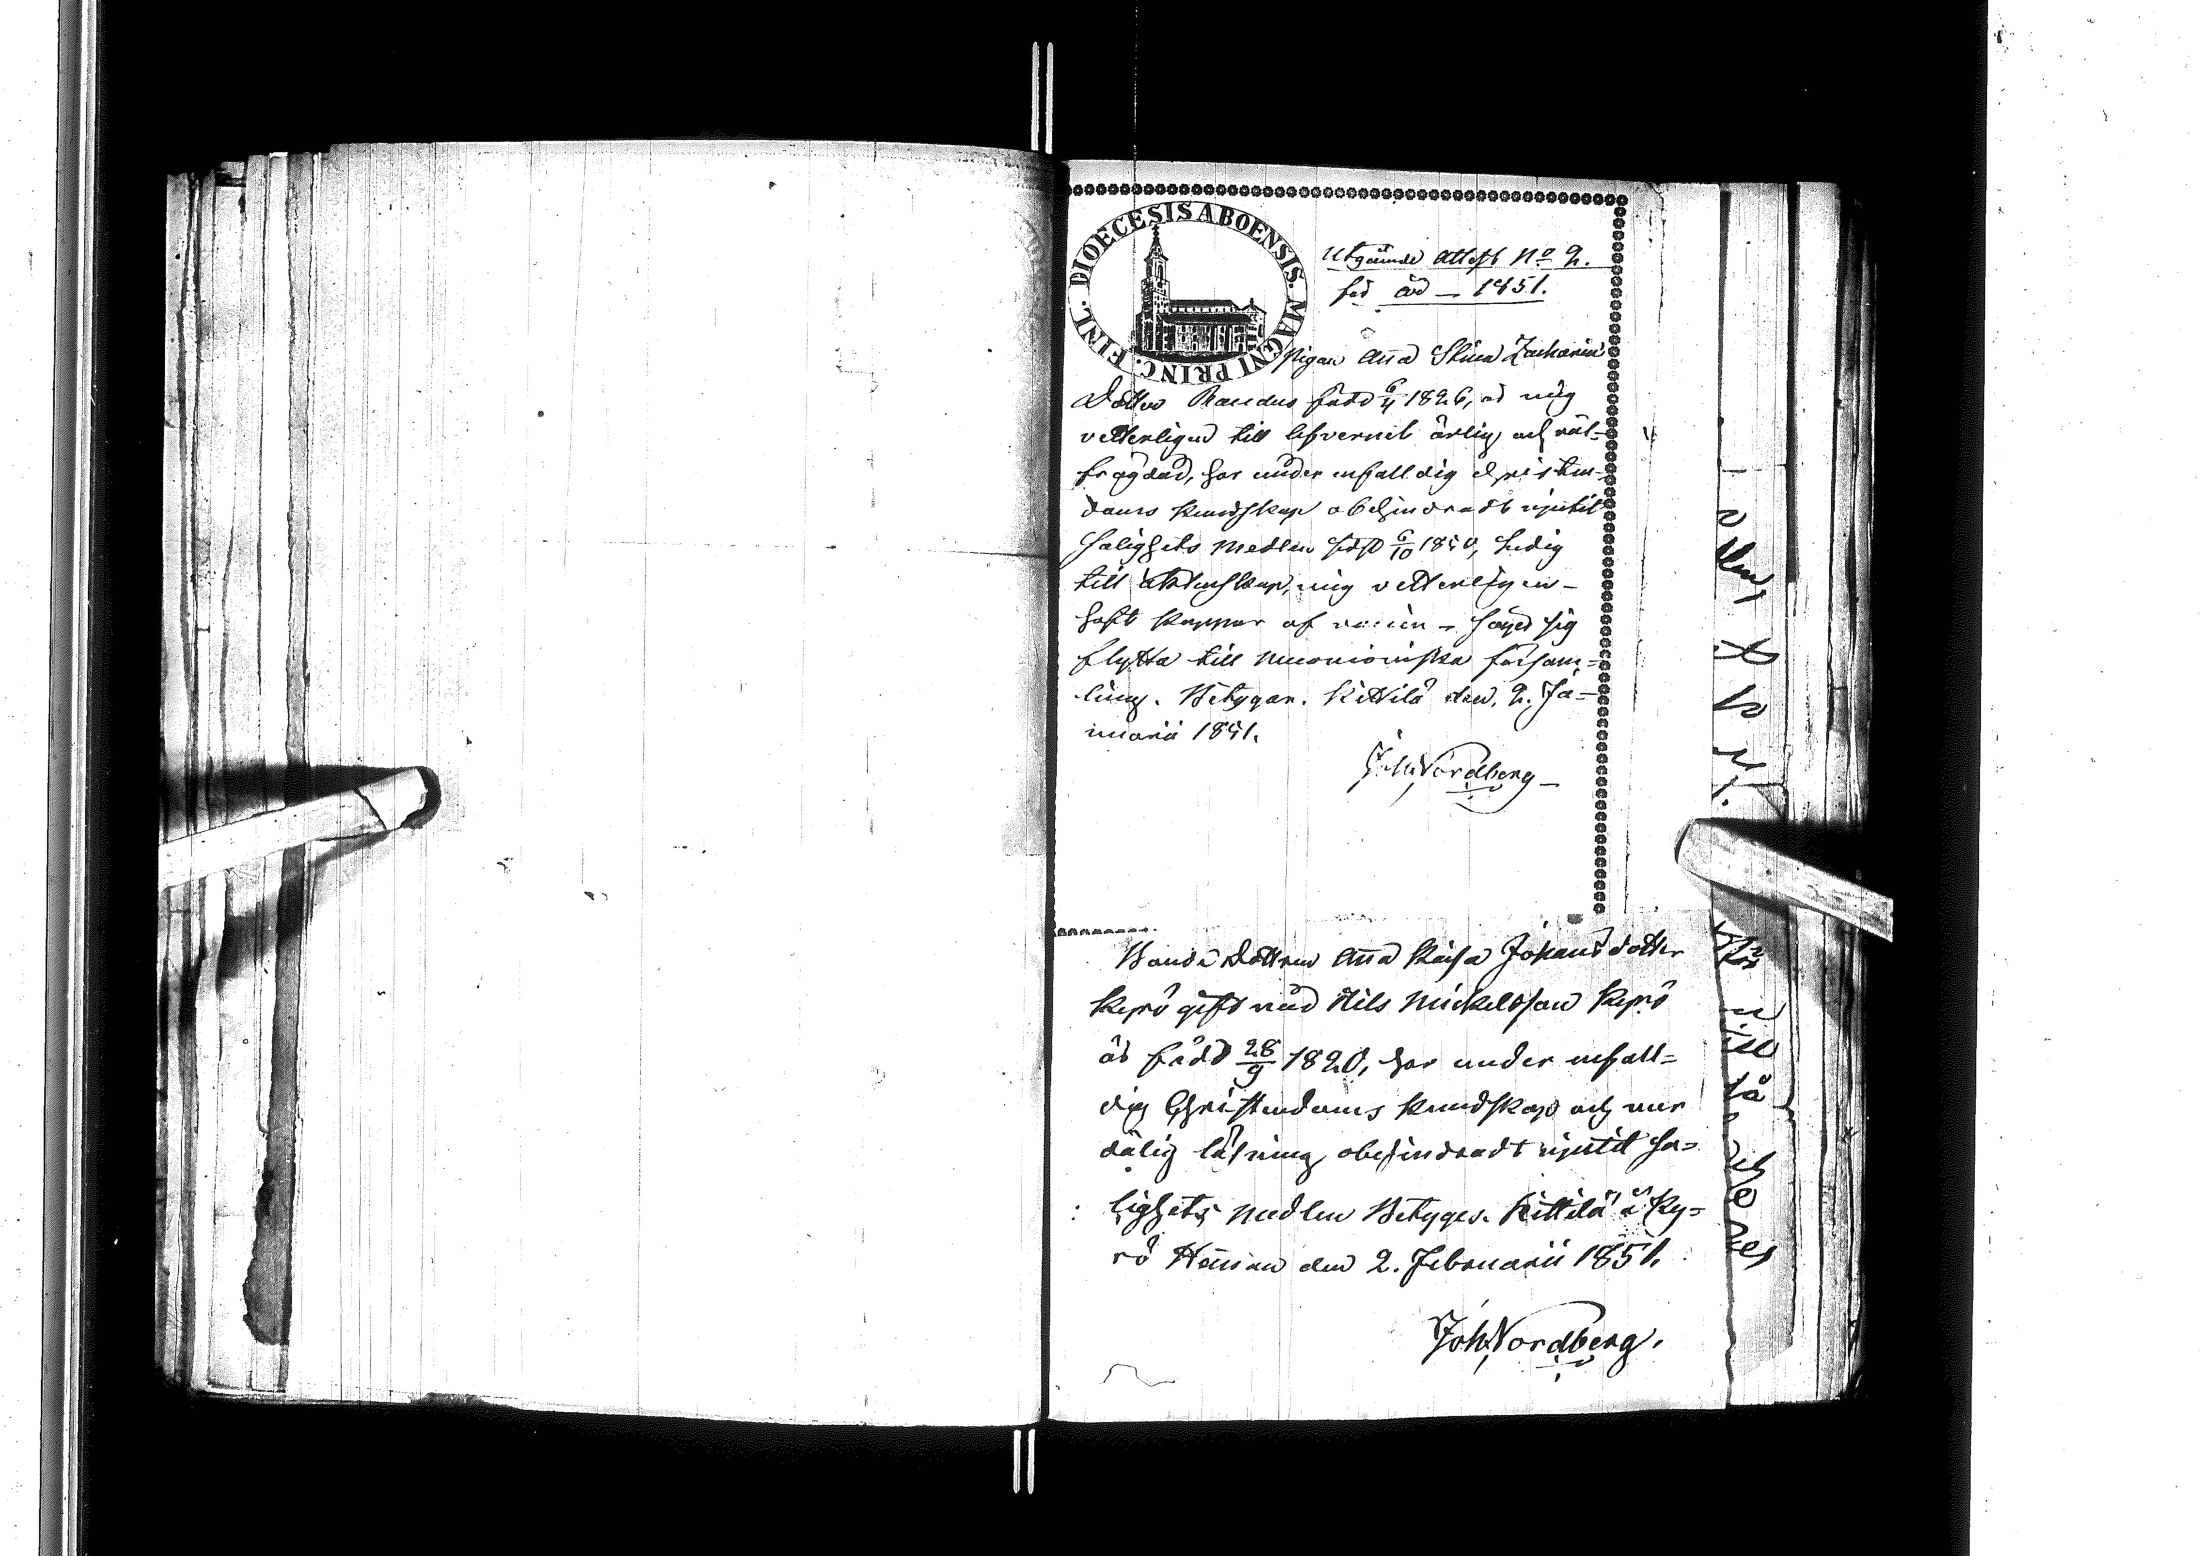 DIOECESIS ABOENSIS. MAGNI PRINC. FINL.
Utgående attest No 2.
för år — 1851.
Pigan Anna Stina Zacharia
Dotter född 6/4 1826, är mig
vetterligen till lefvernet ärlig och väl-
frägdad, har under enfalldig Christen-
doms kundskap obehindradt njutit
Salighets medlen sist 6/10 1850, ledig
till äktenskap, mig vetterligen
haft koppor af — säges sig
flytta till Muonioniska försam=
ling. Betygar. Kittilä den 2. Ja=
nuarii 1851.
Joh. Nordberg
Bonde Dottren Anna Kaisa Johansdotter
Kyrö gift med Nils Mickelsson Kyrö
är född 28/9 1820, har under enfall=
dig Christendoms kundskap och
dålig läsning obehindradt njutit Sa=
lighets medlen Betyges. Kittilä i Ky=
rö Hemman den 2. Februarii 1851.
Joh. Nordberg.